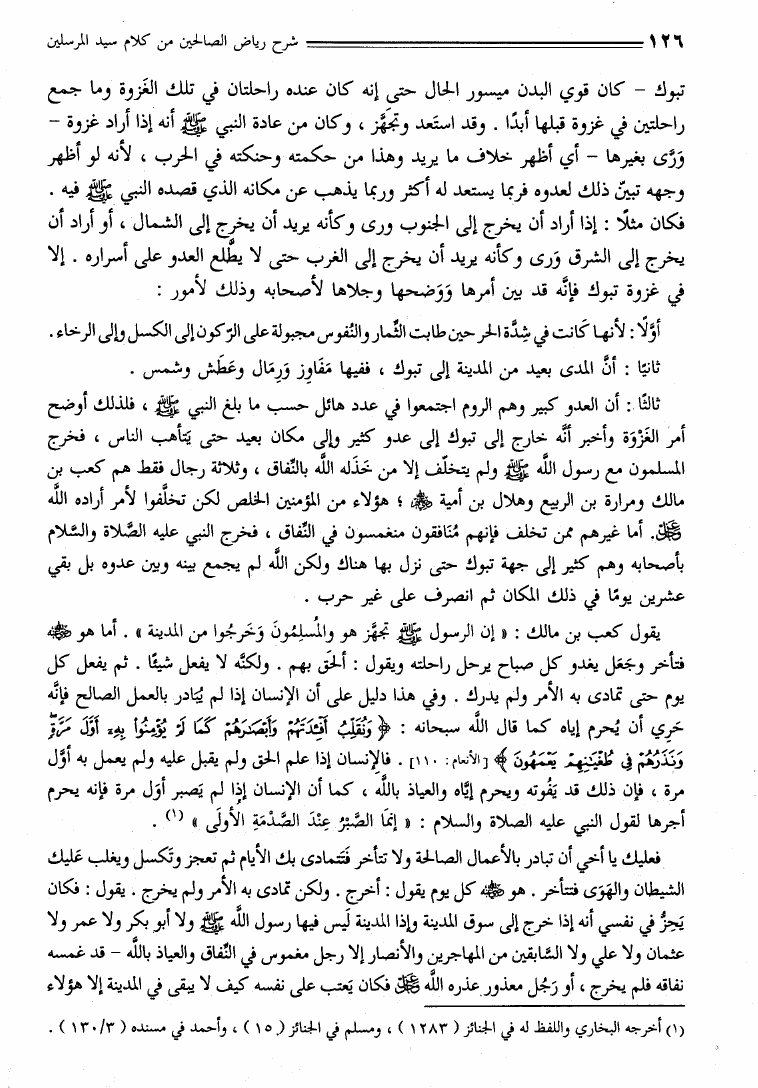 ١٢٦ شرح رياض الصالحين من كلام سيد المرسلين
تبوك – كان قوي البدن ميسور الحال حتى إنه كان عنده راحلتان في تلك الغَزوة وما جمع
راحلتين في غزوة قبلها أبدًا . وقد استَعد وتجَهَّز ، وكان من عادة النبي ﷺ أنه إذا أراد غزوة –
وَرَّى بغيرها – أي أظهر خلاف ما يريد وهذا من حكمته وحنكته في الحرب ، لأنه لو أظهر
وجهه تبينّ ذلك لعدوه فربما يستعد له أكثر وربما يذهب عن مكانه الذي قصده النبي ﷺ فيه .
فكان مثلًا : إذا أراد أن يخرج إلى الجنوب ورى وكأنه يريد أن يخرج إلى الشمال ، أو أراد أن
يخرج إلى الشرق وَرى وكأنه يريد أن يخرج إلى الغرب حتى لا يطَّلع العدو على أسراره . إلا
في غزوة تبوك فإنَّه قد بين أمرها وَوَضحها وجلاها لأصحابه وذلك لأمور :
أوَّلًا : لأنها كَانت في شِدَّة الحر حين طابت الثِّمار والنُّفوس مجبولة على الرّكون إلى الكسل وإلى الرخاء .
ثانيًا : أنَّ المدى بعيد من المدينة إلى تبوك ، ففيها مَفَاوِز وَرِمَال وعَطَش وشمس .
ثالثًا : أن العدو كبير وهم الروم اجتمعوا في عدد هائل حسب ما بلغ النبي ﷺ ، فلذلك أوضح
أمر الغَزْوَة وأخبر أنَّه خارج إلى تبوك إلى عدو كثير وإلى مكان بعيد حتى يَتأهب الناس ، فخرج
المسلمون مع رسول اللَّه ﷺ ولم يتخلّف إلا من خَذَله اللَّه بالنِّفاق ، وثلاثة رجال فقط هم كعب بن
مالك ومرارة بن الربيع وهلال بن أمية ﷺ ؛ هؤلاء من المؤمنين الخلص لكن تخلَّفوا لأمر أراده اللَّه
ﷻ. أما غيرهم ممن تخلف فإنهم مُنَافقون منغمسون في النِّفاق ، فخرج النبي عليه الصَّلاة والسَّلام
بأصحابه وهم كثير إلى جهة تبوك حتى نزل بها هناك ولكن اللَّه لم يجمع بينه وبين عدوه بل بقي
عشرين يومًا في ذلك المكان ثم انصرف على غير حرب .
يقول كعب بن مالك : « إن الرسول ﷺ تجهَّز هو والمُسلِمُونَ وَخرجُوا من المدينة » . أما هو
فتأخر وجَعَل يغدو كل صباح يرحل راحلته ويقول : ألحَق بهم . ولكنَّه لا يفعل شيئًا . ثم يفعل كل
يوم حتى تمادى به الأمر ولم يدرك . وفي هذا دليل على أن الإنسان إذا لم يُبَادر بالعمل الصالح فإنَّه
حَرِي أن يُحرم إياه كما قال اللَّه سبحانه : ﴿ وَنُقَلِّبُ أَفْـِٔدَتَهُمْ وَأَبْصَـٰرَهُمْ كَمَا لَمْ يُؤْمِنُوا۟ بِهِۦٓ أَوَّلَ مَرَّةٍ
وَنَذَرُهُمْ فِى طُغْيَـٰنِهِمْ يَعْمَهُونَ ﴾ [الأنعام: ١١٠] . فالإنسان إذا علم الحق ولم يقبل عليه ولم يعمل به أوَّل
مرة ، فإن ذلك قد يَفُوته ويحرم إيَّاه والعياذ باللَّه ، كما أن الإنسان إذا لم يَصبر أوَّل مرة فإنه يحرم
أجرها لقول النبي عليه الصلاة والسلام : « إنمَّا الصَّبْرُ عِنْدَ الصَّدْمَةِ الأُولَى » (١) .
فعليك يا أخي أن تبادر بالأعمال الصالحة ولا تتأخر فَتَتمادى بك الأيام ثم تعجز وتَكسل ويغلب عَليك
الشيطان والهَوَى فتتأخر . هو كل يوم يقول : أخرج . ولكن تمادى به الأمر ولم يخرج . يقول : فكان
يَحِزُّ في نفسي أنه إذا خرج إلى سوق المدينة وإذا المدينة لَيس فيها رسول اللَّه ﷺ ولا أبو بكر ولا عمر ولا
عثمان ولا علي ولا السَّابقين من المهاجرين والأنصار إلا رجل مغموس في النِّفاق والعياذ باللَّه – قد غمسه
نفاقه فلم يخرج ، أو رَجُل معذور عذره اللَّه ﷻ فكان يَعتب على نفسه كيف لا يبقى في المدينة إلا هؤلاء
(١) أخرجه البخاري واللفظ له في الجنائز ( ١٢٨٣ ) ، ومسلم في الجنائز ( ١٥ ) ، وأحمد في مسنده ( ١٣٠/٣ ) .